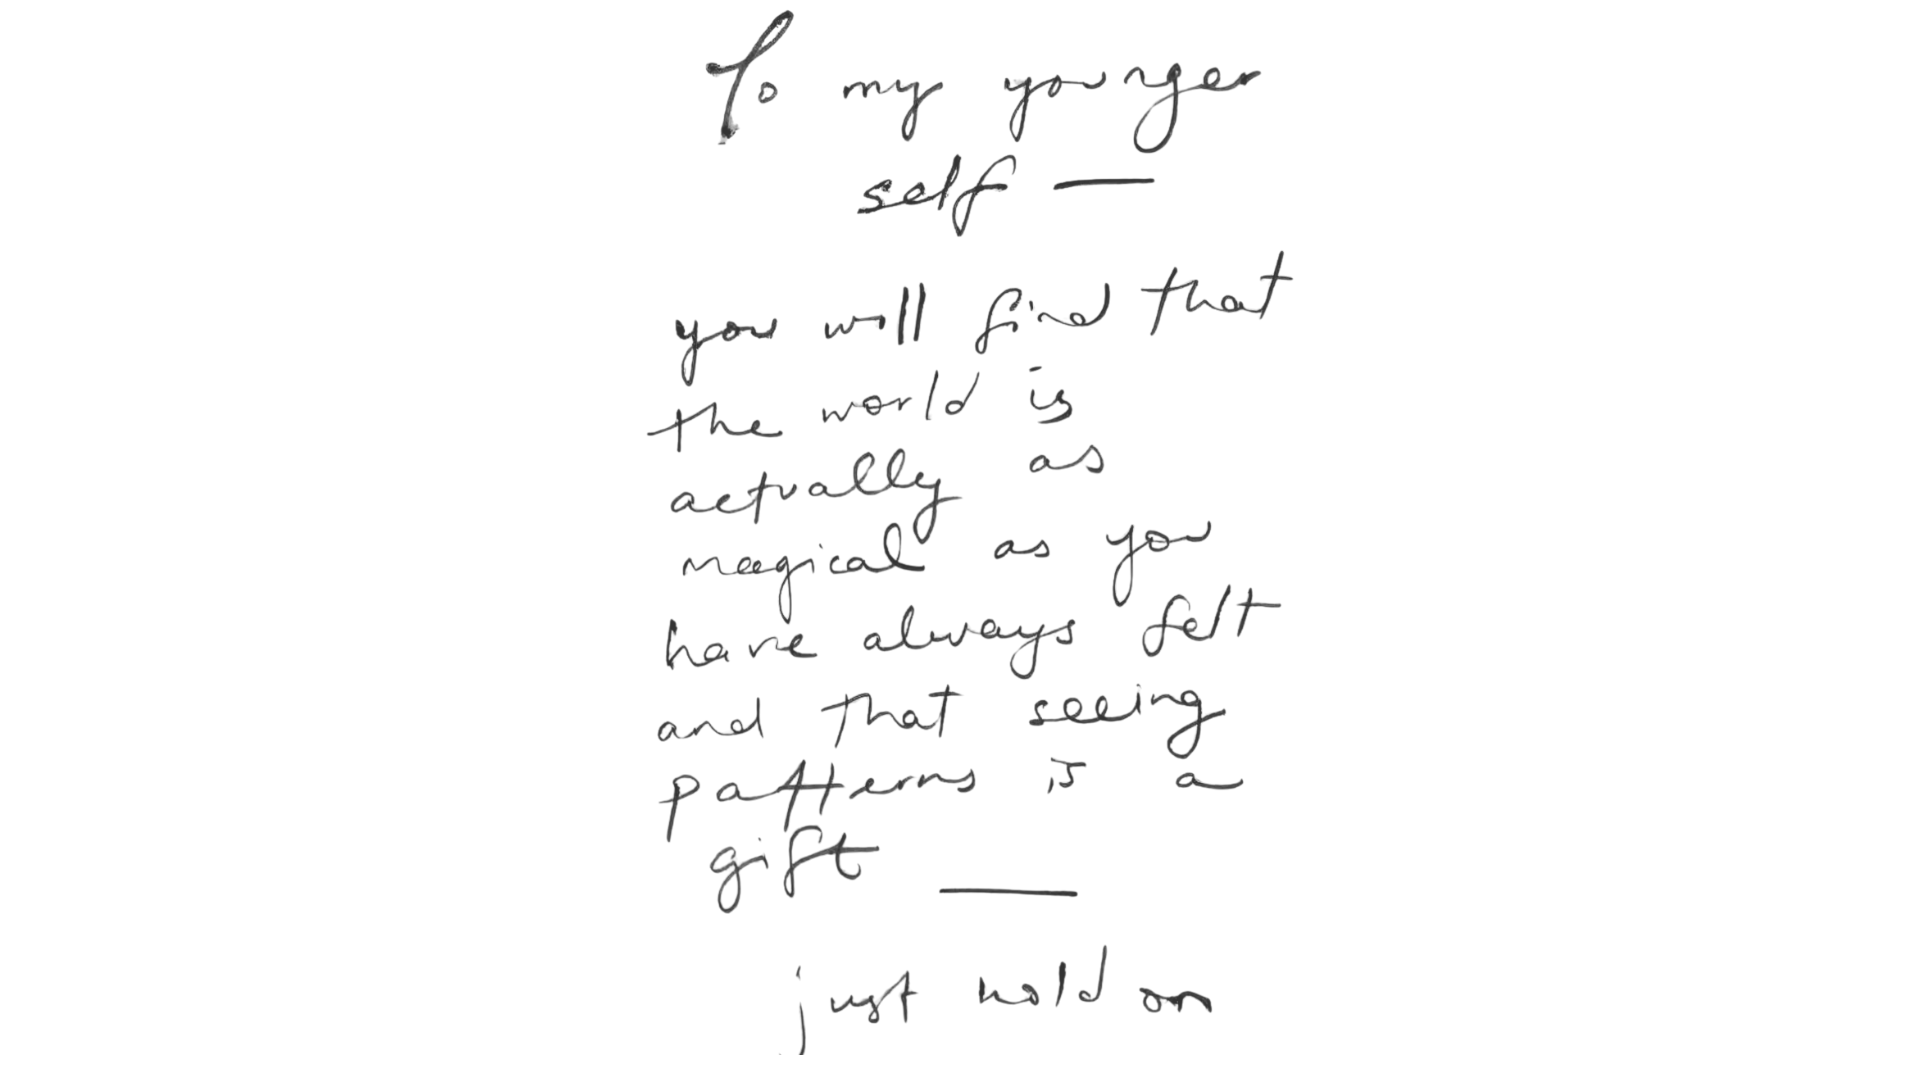 To my younger
self —
you will find that
the world is
actually as
magical as you
have always felt
and that seeing
patterns is a
gift —
just hold on